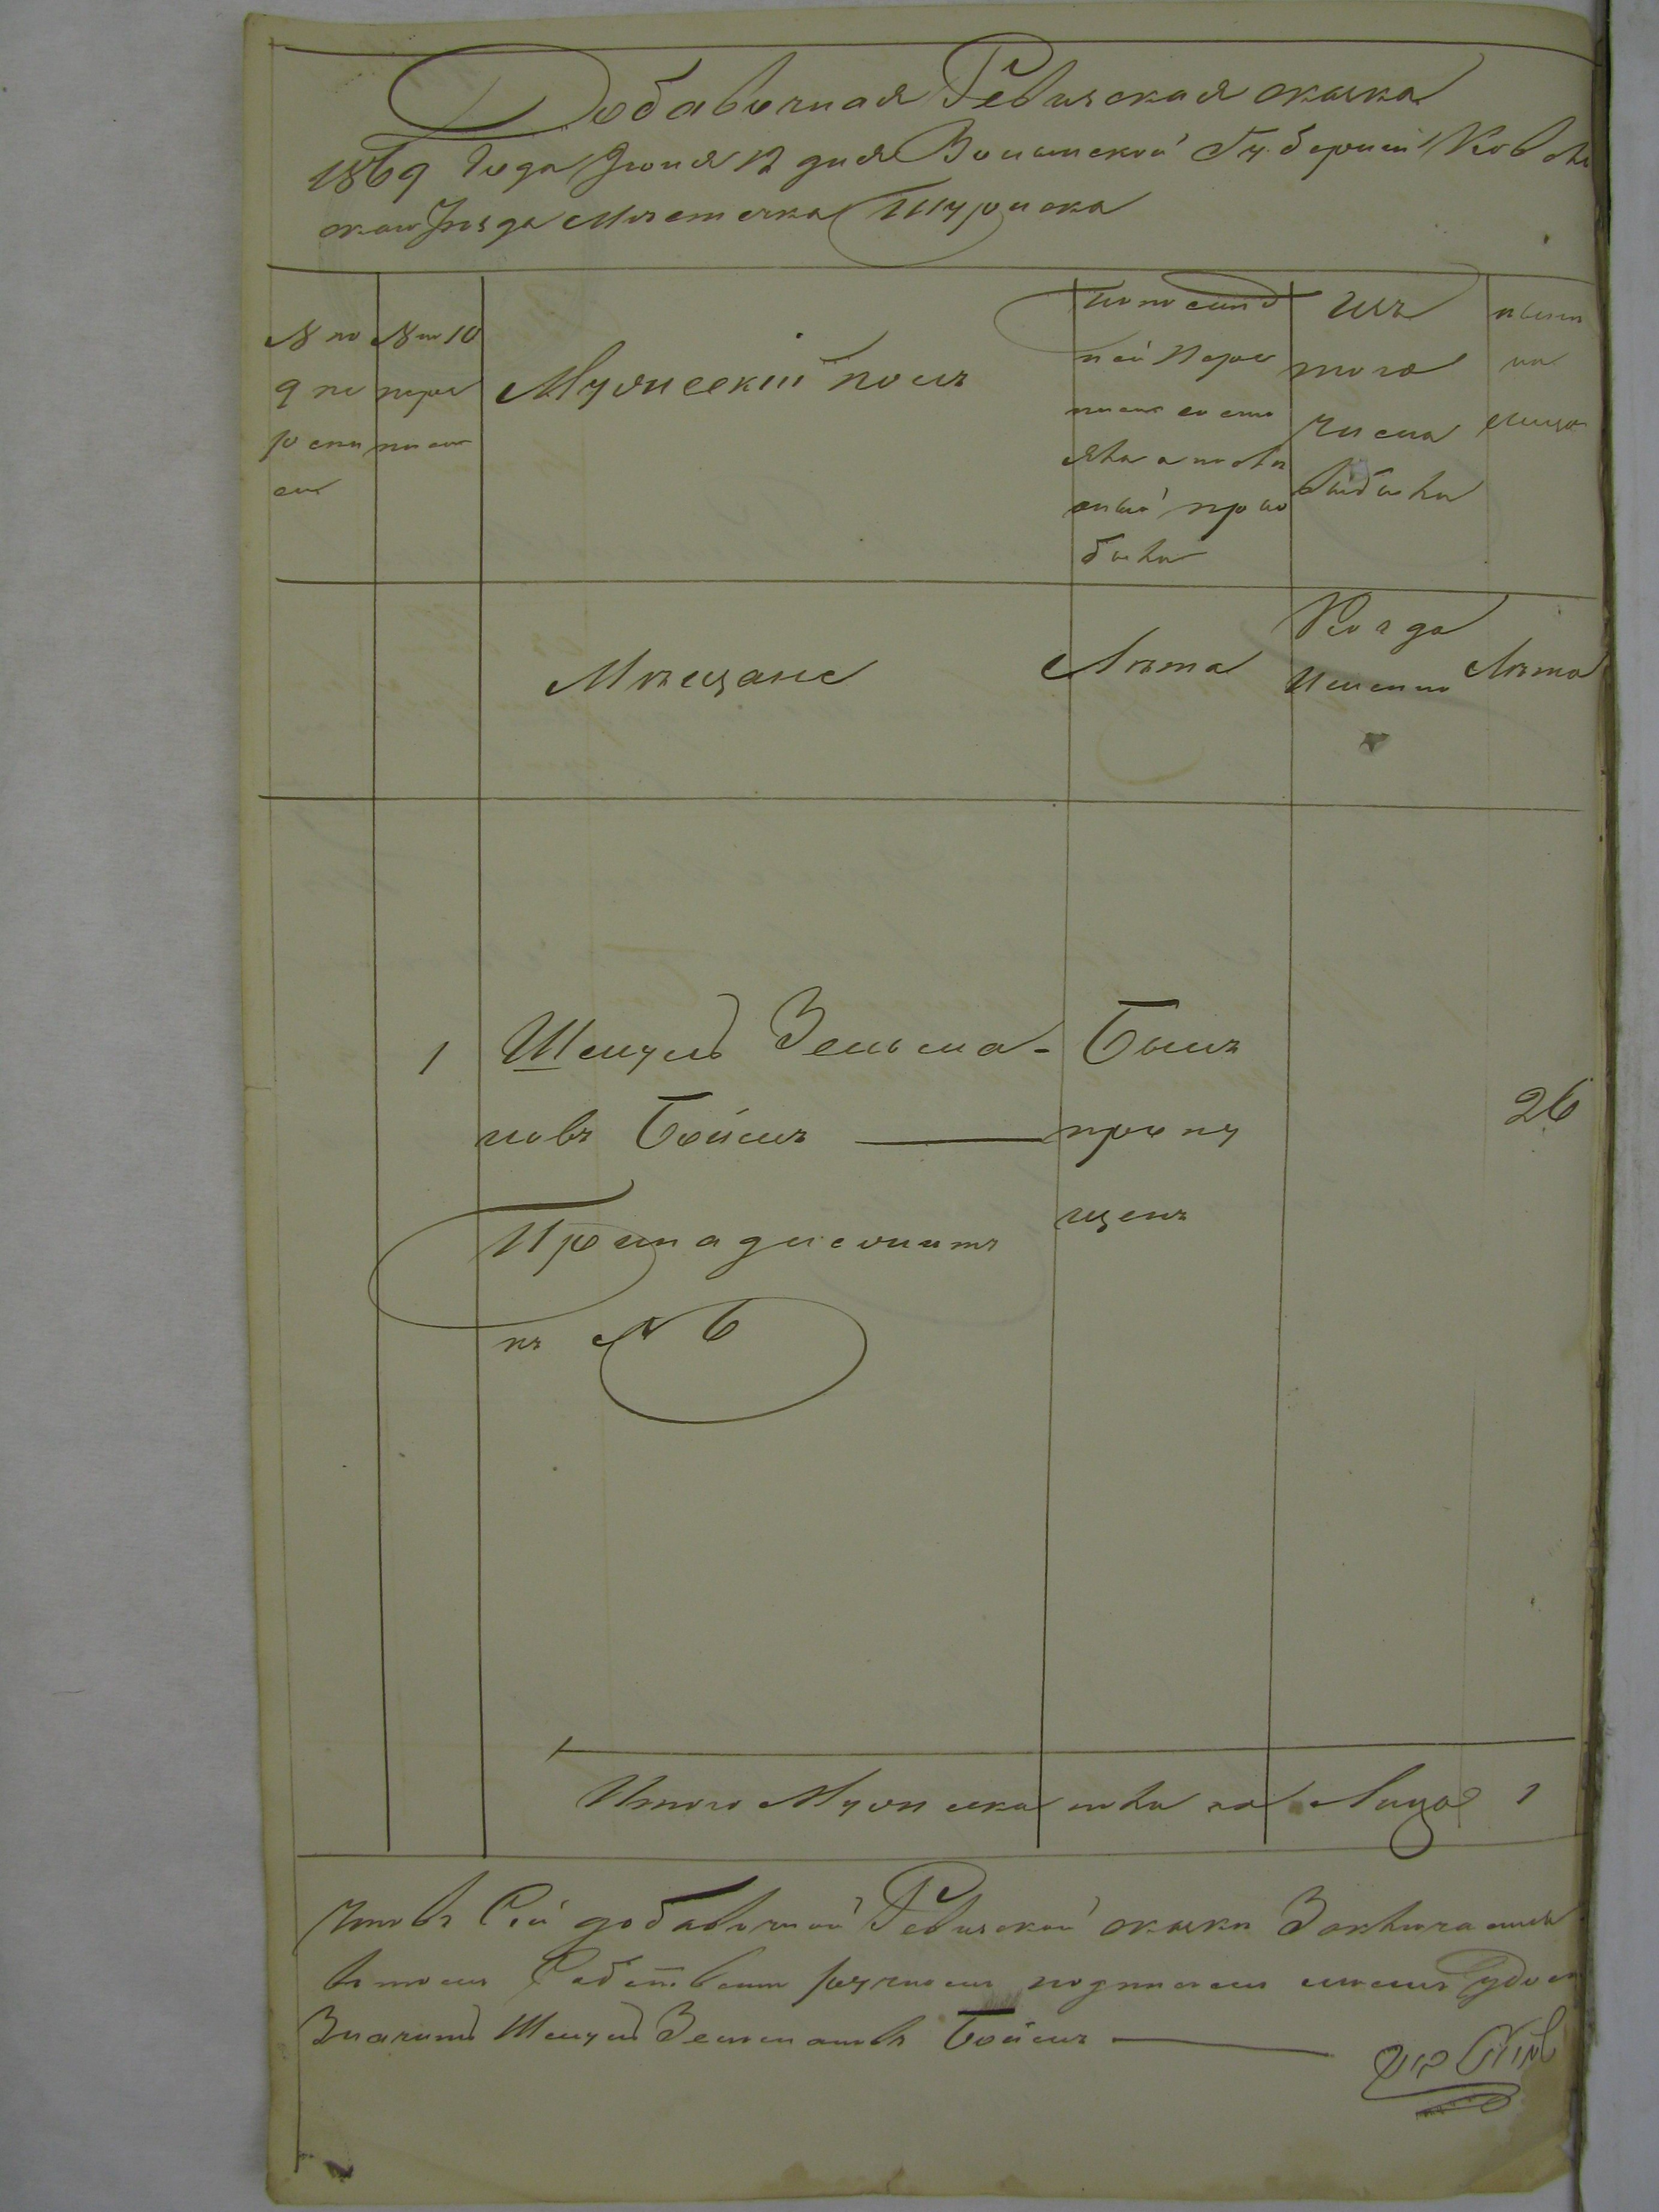 Добавочная Ревизская сказка
1869 Года Июня 12 дня Волынской Губернии Ковель
скаго Уезда Местечка Турийска
№ по
9 пе
репи
си
№ по 10
пере
писи
Мужеский полъ
по послед
ней Пере
писи состо
яло и после
оной при
было
Изъ
того
числа
выбыло
ныне
на
лицо
Мещане
Лета
Когда
Именно
Лета
1 Шмуль Зельма-
новъ Боймъ
Принадлежитъ
къ № 6
Былъ
пропу
щенъ
26
Итого Мужеска пола на Лицо 1
Что въ Сей добавочной Ревизской сказки
въ томъ Собственноручно подписомъ моимъ
Шмуль Зельмановъ Боймъ